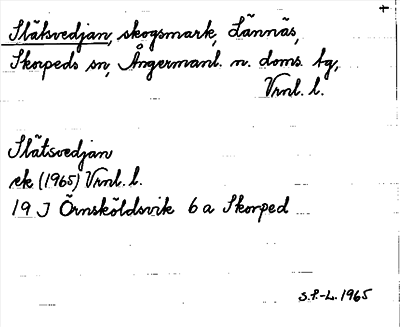 Slätsvedjan, skogsmark, Lännäs,
Skorpeds sn, Ångermanl. n. doms. tg,
Vrnl. l.
Slätsvedjan
ek (1965) Vrnl. l.
19 J Örnsköldsvik 6 a Skorped
S.F.-L. 1965